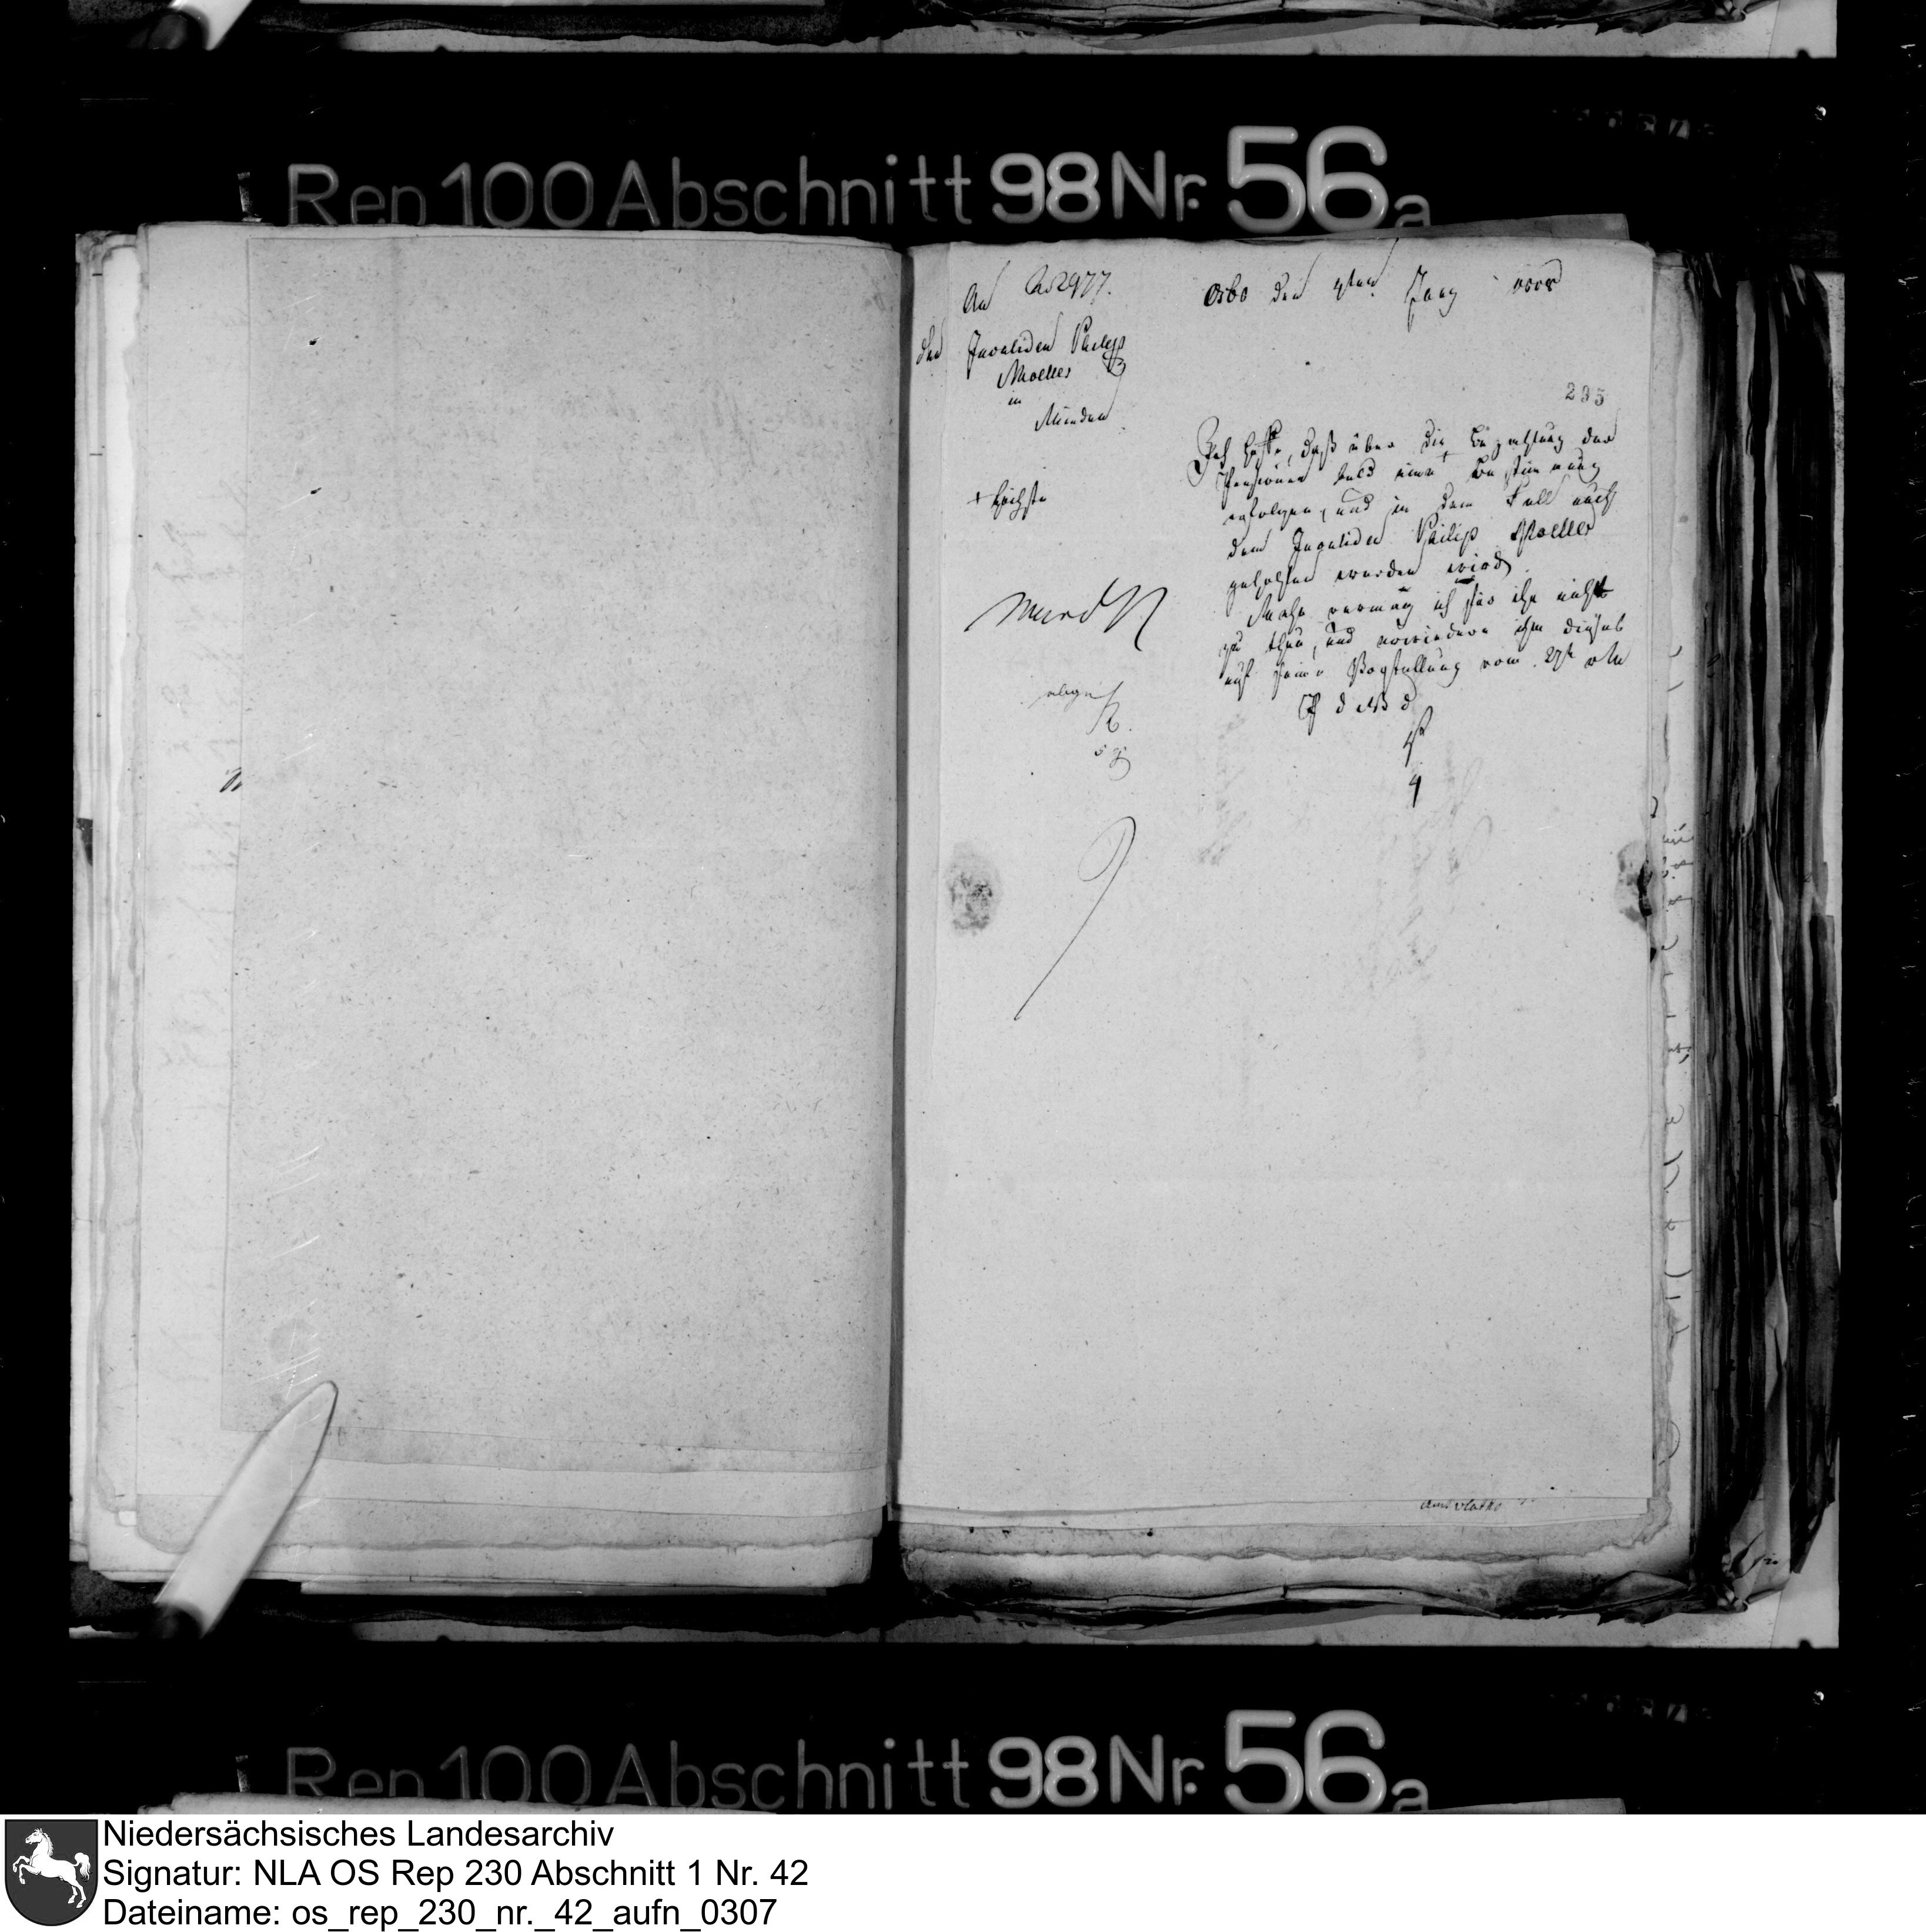 Rep 100 Abschnitt 98 Nr. 56a
An No 2977.
Osb den 4ten Jany
den Invaliden Philip
Moeller
in
Minden
235
Ich hoffe, daß über die Bezahlung der
Pensionen bald eine + Bestimmung
+ höchste
erfolgen, und in dem Fall auch
dem Invaliden Philip Moeller
geholfen werden wird.
Mehr vermag ich für ihn nicht
zu thun, und erwiedere ihm dieses
auf seine Vorstellung vom 27t
mund
Rep 100 Abschnitt 98 Nr. 56a
Niedersächsisches Landesarchiv
Signatur: NLA OS Rep 230 Abschnitt 1 Nr. 42
Dateiname: os_rep_230_nr._42_aufn_0307